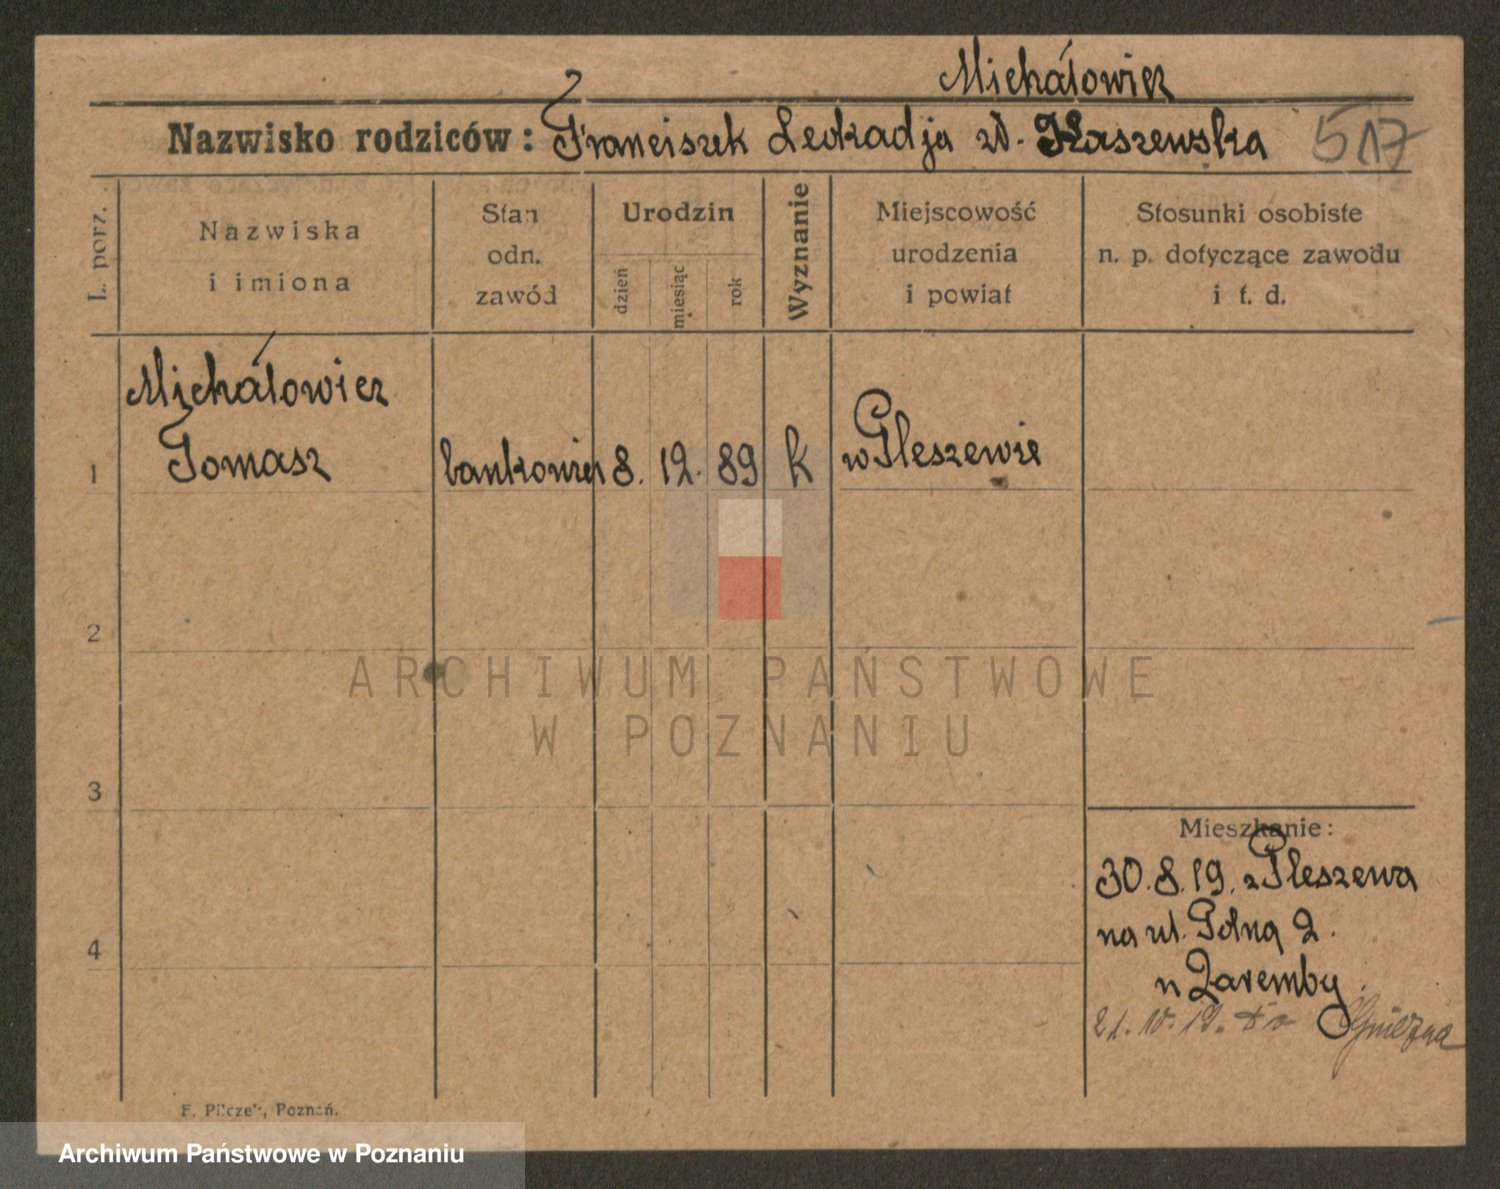 Michałowicz
Nazwisko rodziców: Franciszek Leokadja zd. Kaszewska 517
L. porz.
Nazwiska
i imiona
Stan
odn.
zawód
Urodzin
dzień
miesiąc
rok
Wyznanie
Miejscowość
urodzenia
i powiat
Stosunki osobiste
n. p. dotyczące zawodu
i t. d.
Michałowicz
1 Tomasz bankowiec 8. 12. 89 k w Pleszewie
2
ARCHIWUM PAŃSTWOWE
W POZNANIU
3
Mieszkanie:
30.8.19. z Pleszewa
na ul. Polną 2.
4
u Zaremby.
21.10.19. do Gniezna
F. Pilczek, Poznań.
Archiwum Państwowe w Poznaniu